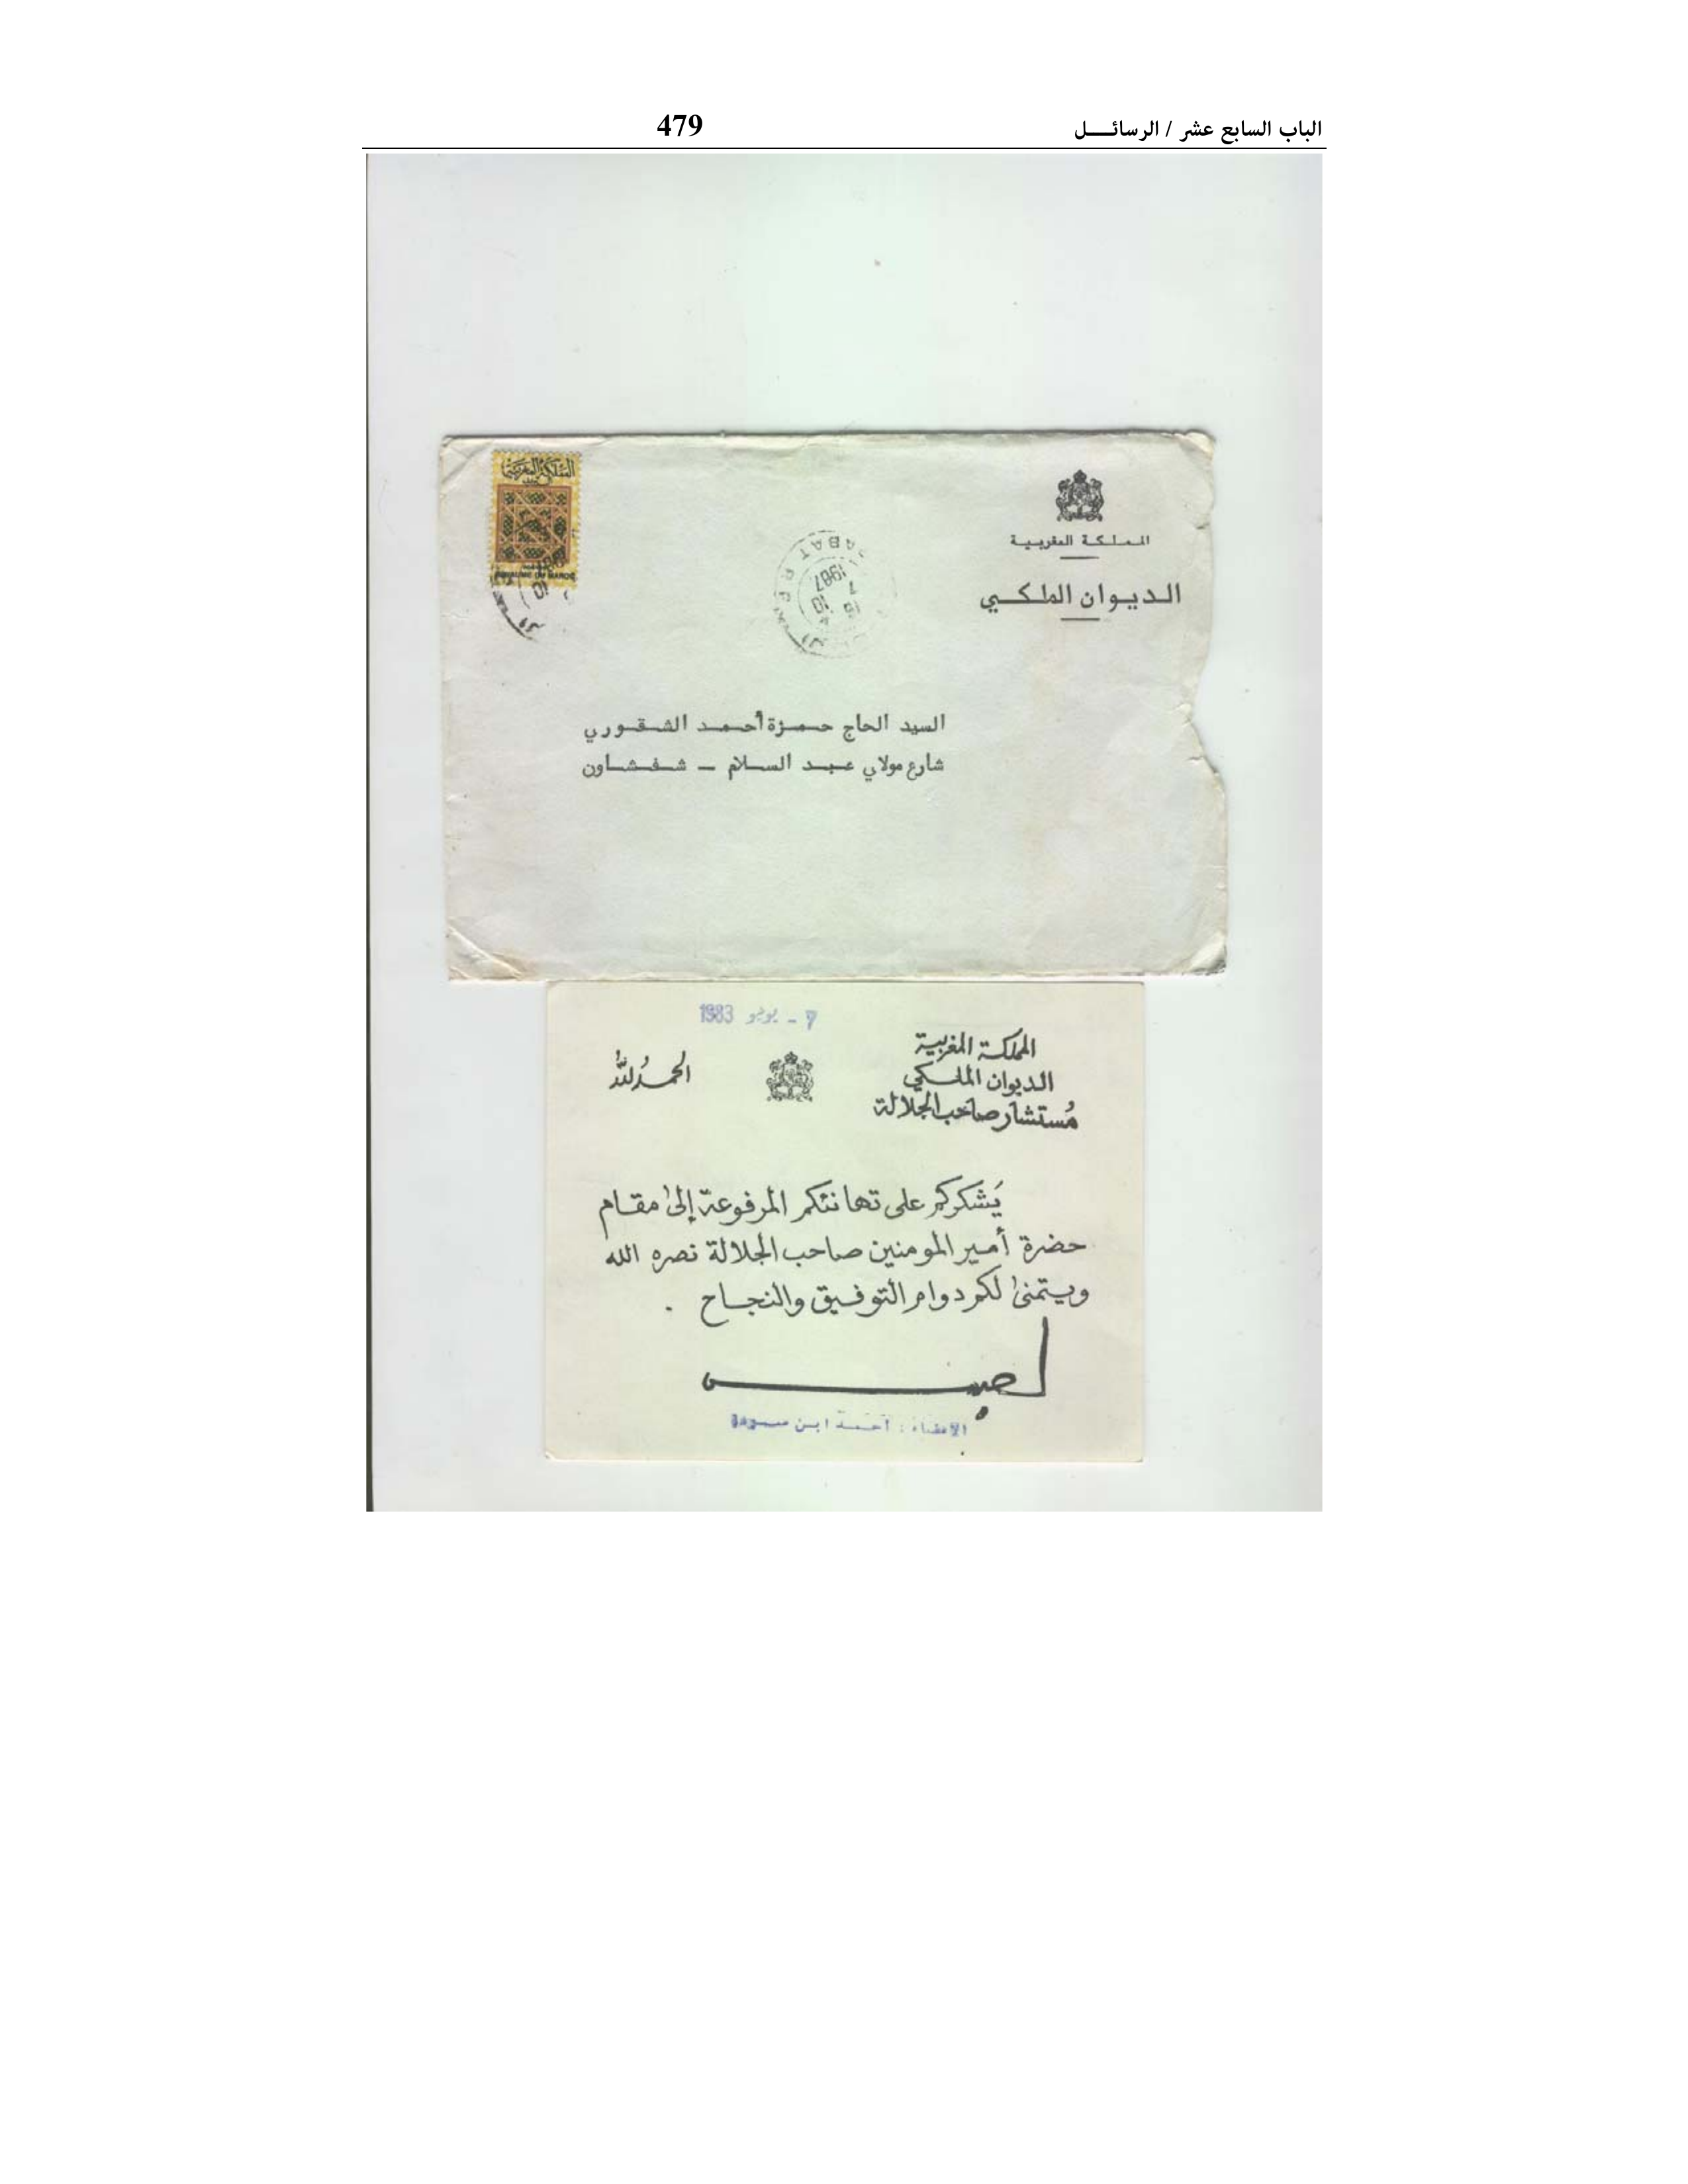 الباب السابع عشر / الرسائــــل
479
المملكة المغربية
ROYAUME DU MAROC
المملكة المغربية
الديوان الملكي
RABAT R P
1987
السيد الحاج حمزة أحمد الشقوري
شارع مولاي عبد السلام – شفشاون
7 - يونيو 1983
المملكة المغربية
الديوان الملكي
مُستشار صاحب الجلالة
الحمد لله
يَشكركم على تهانئكم المرفوعة إلى مقام
حضرة أمير المومنين صاحب الجلالة نصره الله
ويتمنى لكم دوام التوفيق والنجاح .
الامضاء : أحمد ابن سودة